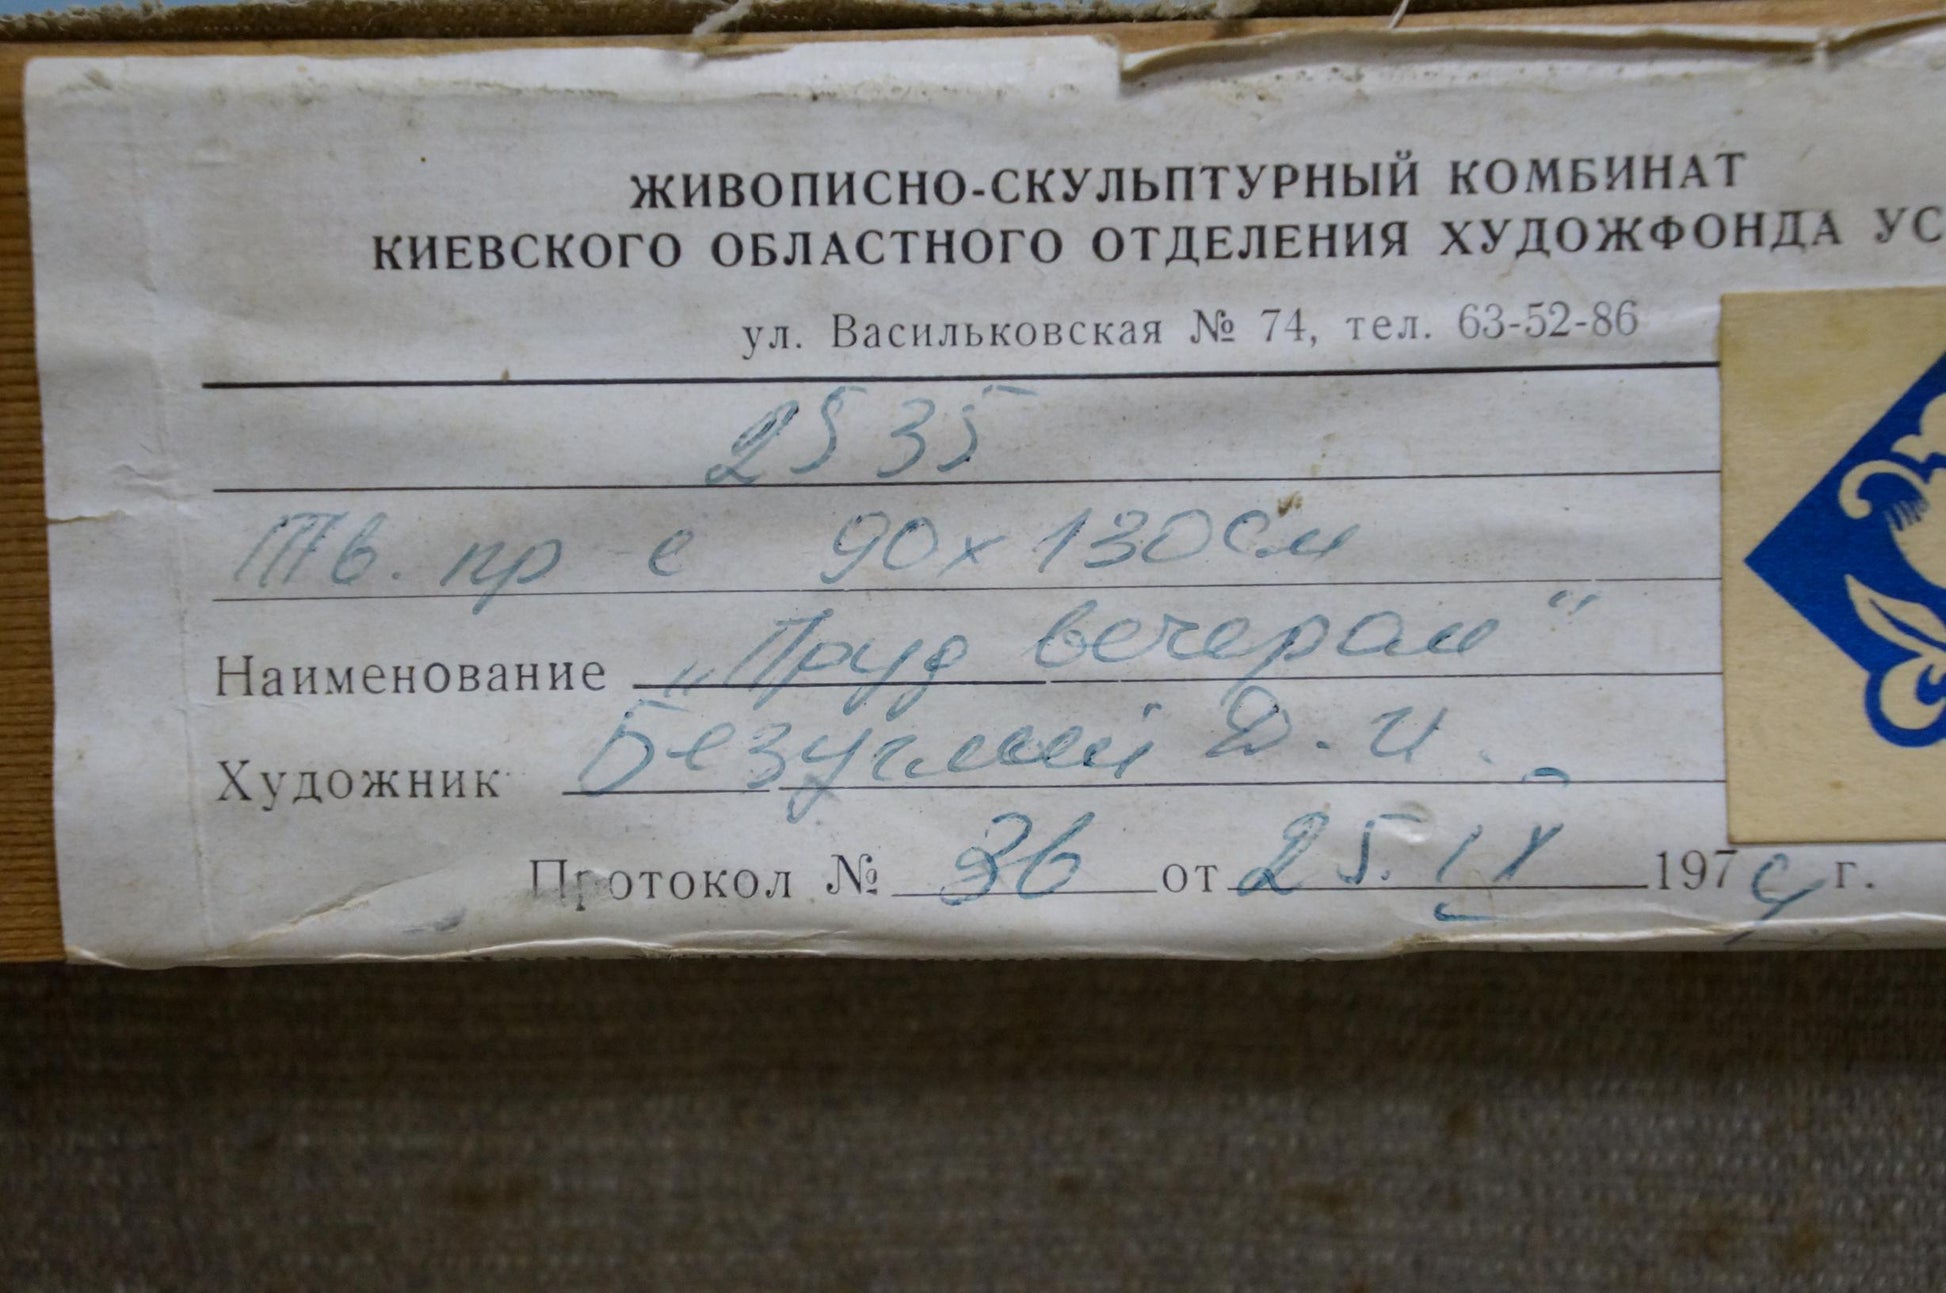 ЖИВОПИСНО-СКУЛЬПТУРНЫЙ КОМБИНАТ
КИЕВСКОГО ОБЛАСТНОГО ОТДЕЛЕНИЯ ХУДОЖФОНДА УС
ул. Васильковская № 74, тел. 63-52-86
2535
Тв. пр с 90х130см
Наименование „Пруд вечером“
Художник Безуглый Д. И.
Протокол № 36 от 25. IX 1979 г.